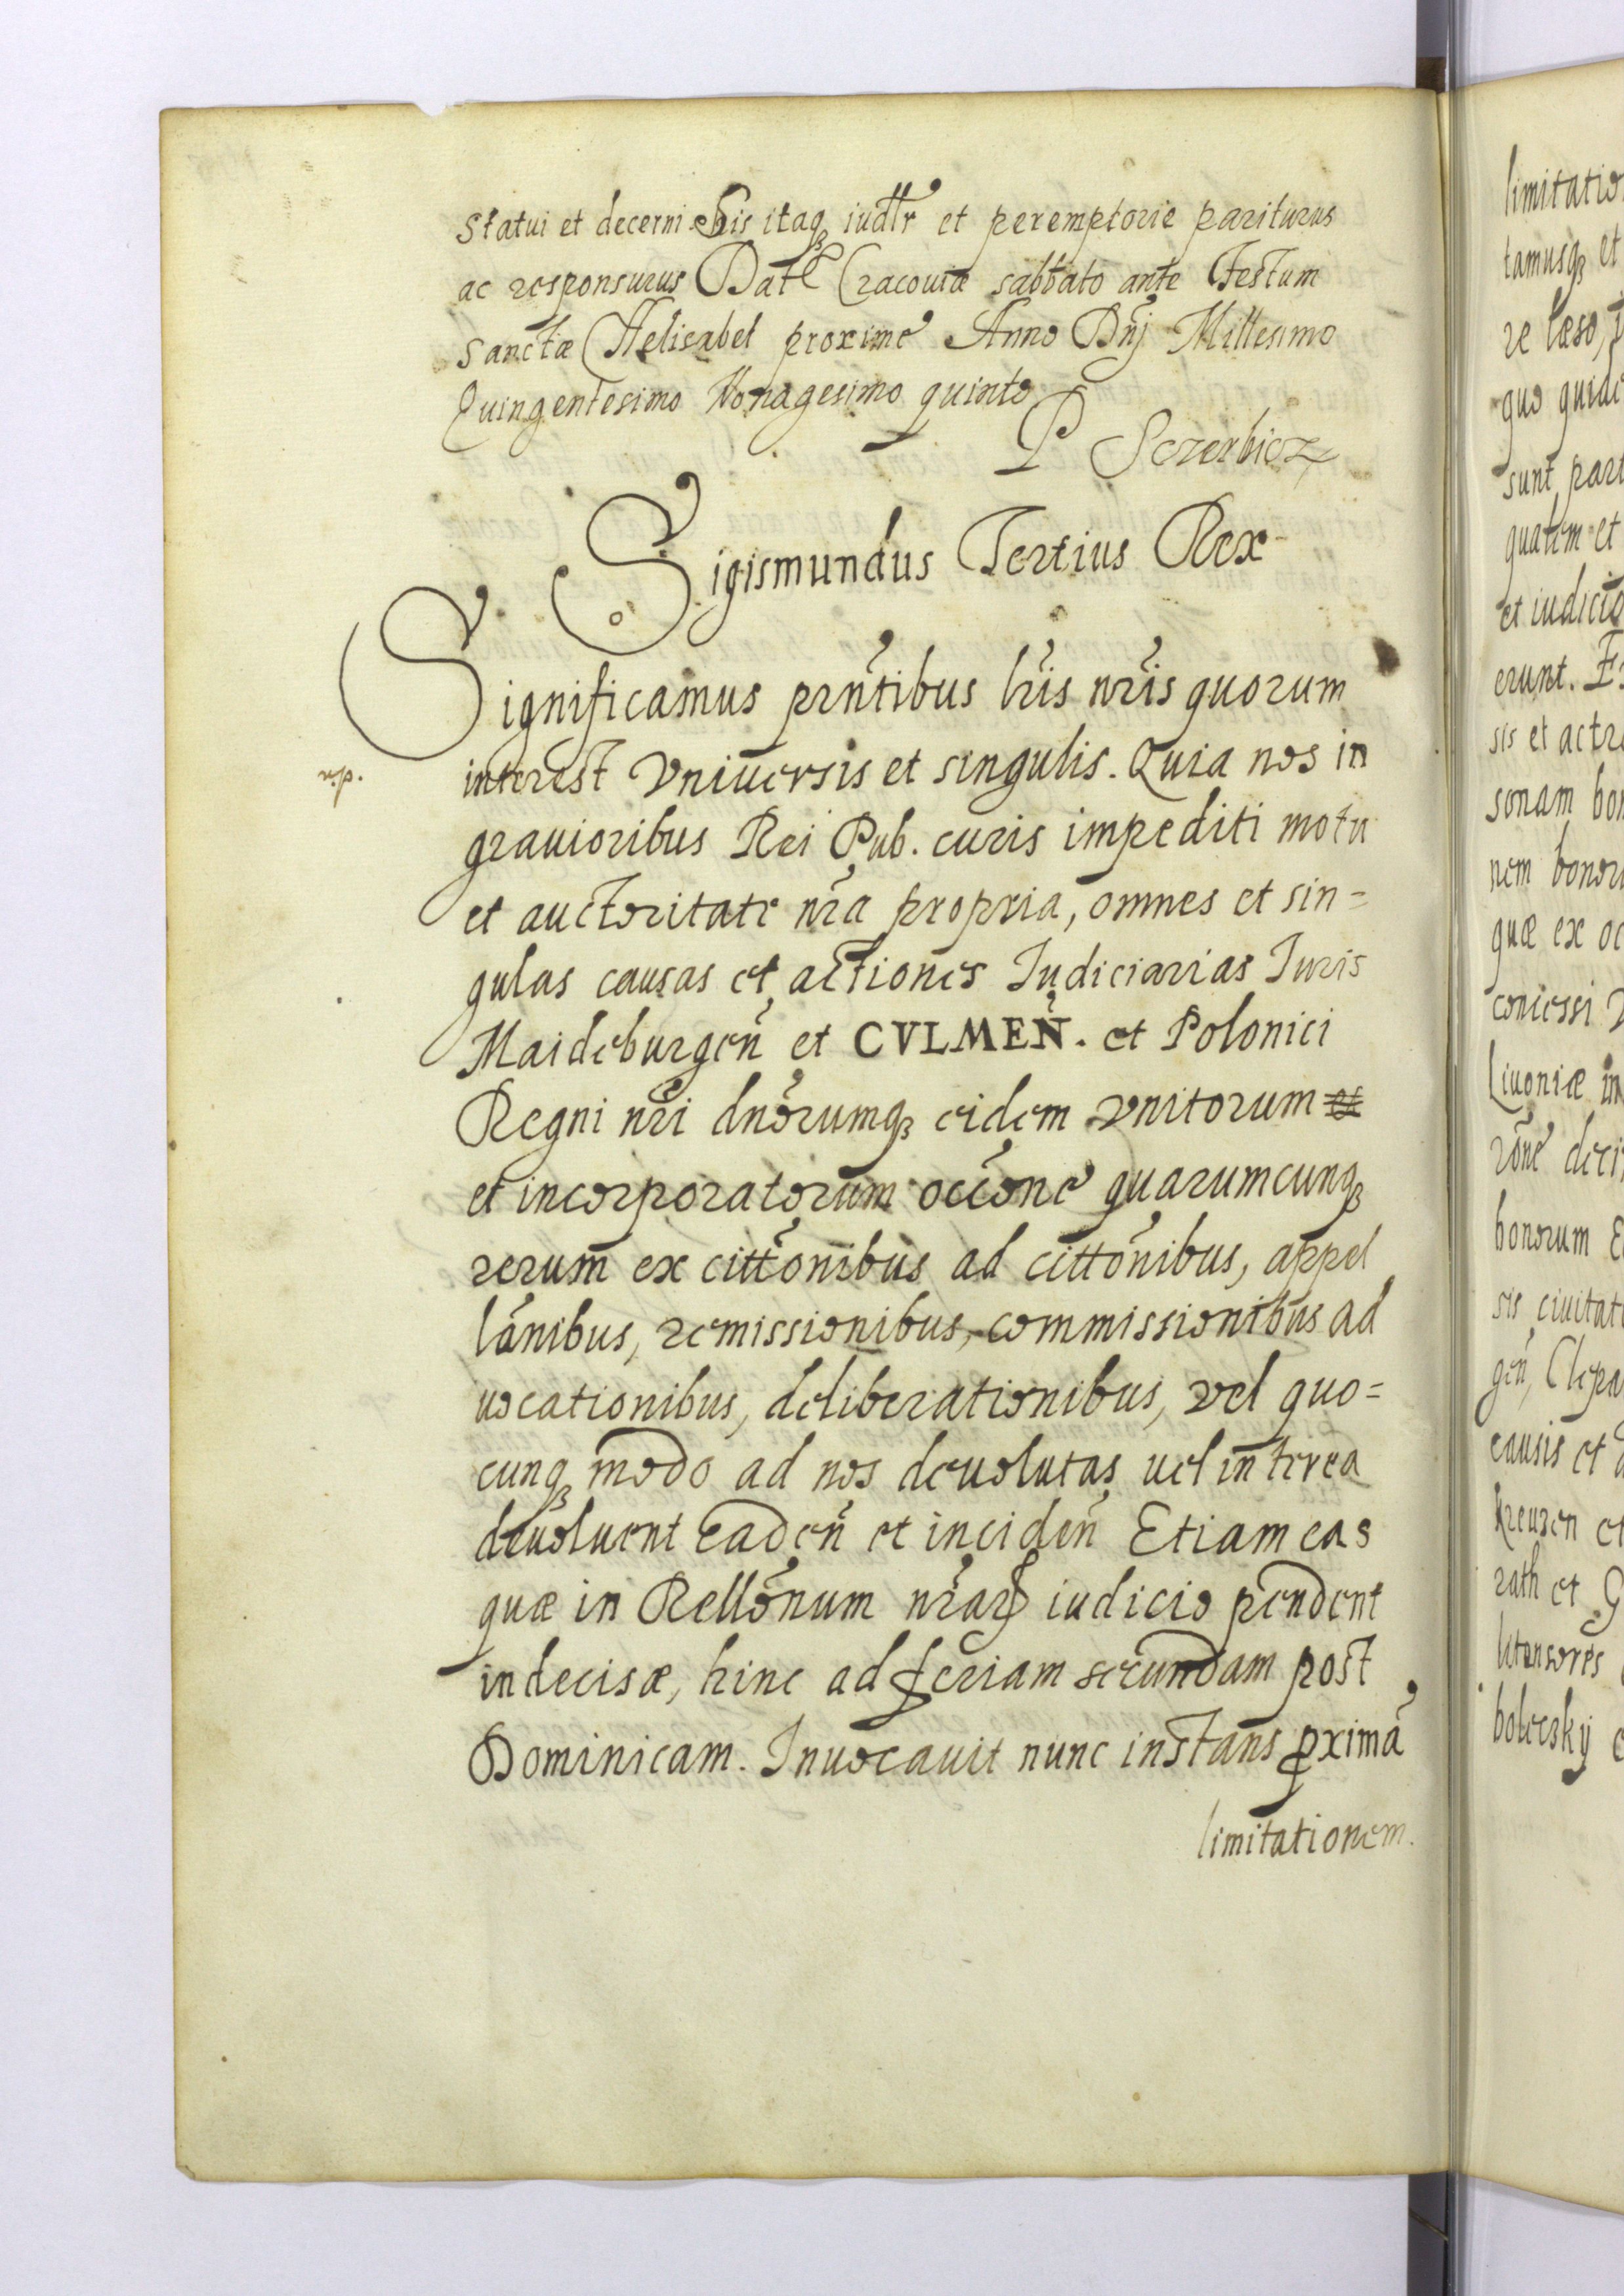 statui et decerni. Eris itaqꝫ iudlr et peremptorie pariturus
ac responsurus Dat Cracouiæ sabbato ante Festum
Sanctæ Helisabet proxime Anno Dnj Millesimo
Quingentesimo Nonagesimo quinto
P Sczerbicz
Sigismundus Tertius Rex
Significamus prntibus lris nris quorum
interest Vniuersis et singulis. Quia nos in
grauioribus Rei Pub. curis impediti motu
et auctoritate nra propria, omnes et sin=
gulas causas et actiones Iudiciarias Iuris
Maideburgen et CVLMEN. et Polonici
Regni nri dnorumqꝫ eidem vnitorum et
et incorporatorum occone quarumcunqꝫ
rerum ex cittonibus ad cittonibus, appel
lanibus, remissionibus, commissionibus ad
uocationibus, deliberationibus, vel quo=
cunqꝫ modo ad nos deuolutas uel interea
deuoluent Caden et inciden Etiam eas
quæ in Rellonum nrarꝝ iudicio pendent
indecisæ, hinc ad feriam secundam post
Dominicam. Inuocauit nunc instans pximā
limitationem.
limitatio
tamusqꝫ et
re læso,
quo quide
sunt, part
quatem et
et iudicio
erunt.
sis et actr
sonam bon
nem bonoru
quæ ex oc
concessi
Liuoniæ in
rone deci
bonorum
sis ciuitat
gen, Clepa
causis et
Kreuzen et
rath et
litensores
bolersky